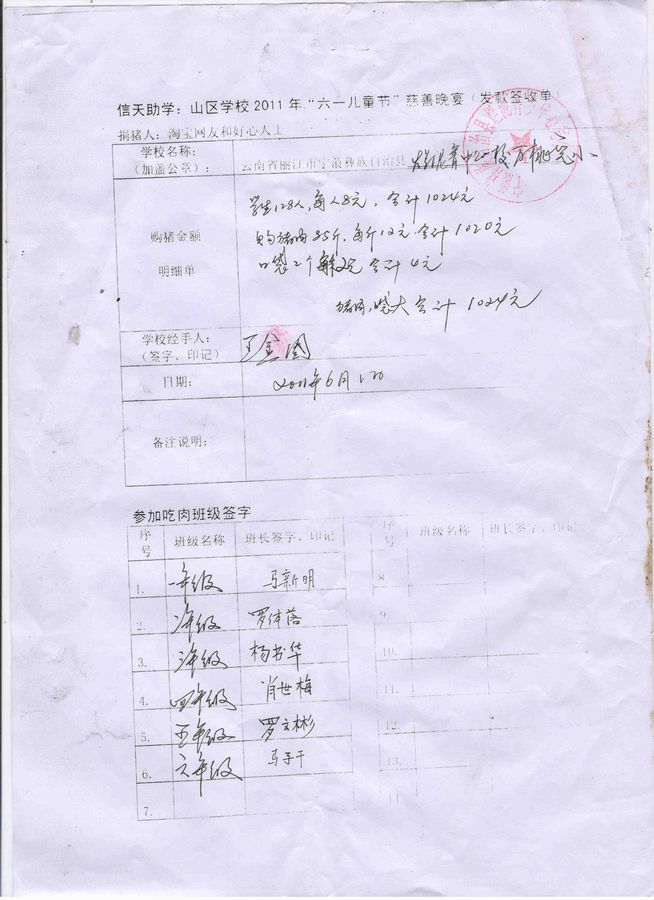 信天助学：山区学校2011年“六一儿童节”慈善晚宴（发款签收单
捐猪人：淘宝网友和好心人士
学校名称：
（加盖公章）：
云南省丽江市宁蒗彝族自治县
购猪金额
明细单
学生128人，每人8元，合计1024元
购猪肉85斤，每斤12元，合计1020元
口袋2个 每个2元 合计4元
猪肉，口袋 合计 1024元
学校经手人：
（签字、印记）
日期：
2011年6月1日
备注说明：
参加吃肉班级签字
序号 班级名称 班长签字、印记 序号 班级名称 班长签字、印记
1. 一年级 马新明 8
2. 二年级 9
3. 三年级 杨书华 10.
4. 四年级 肖世梅 11.
5. 五年级 罗文彬 12.
6. 六年级 13.
7. 14